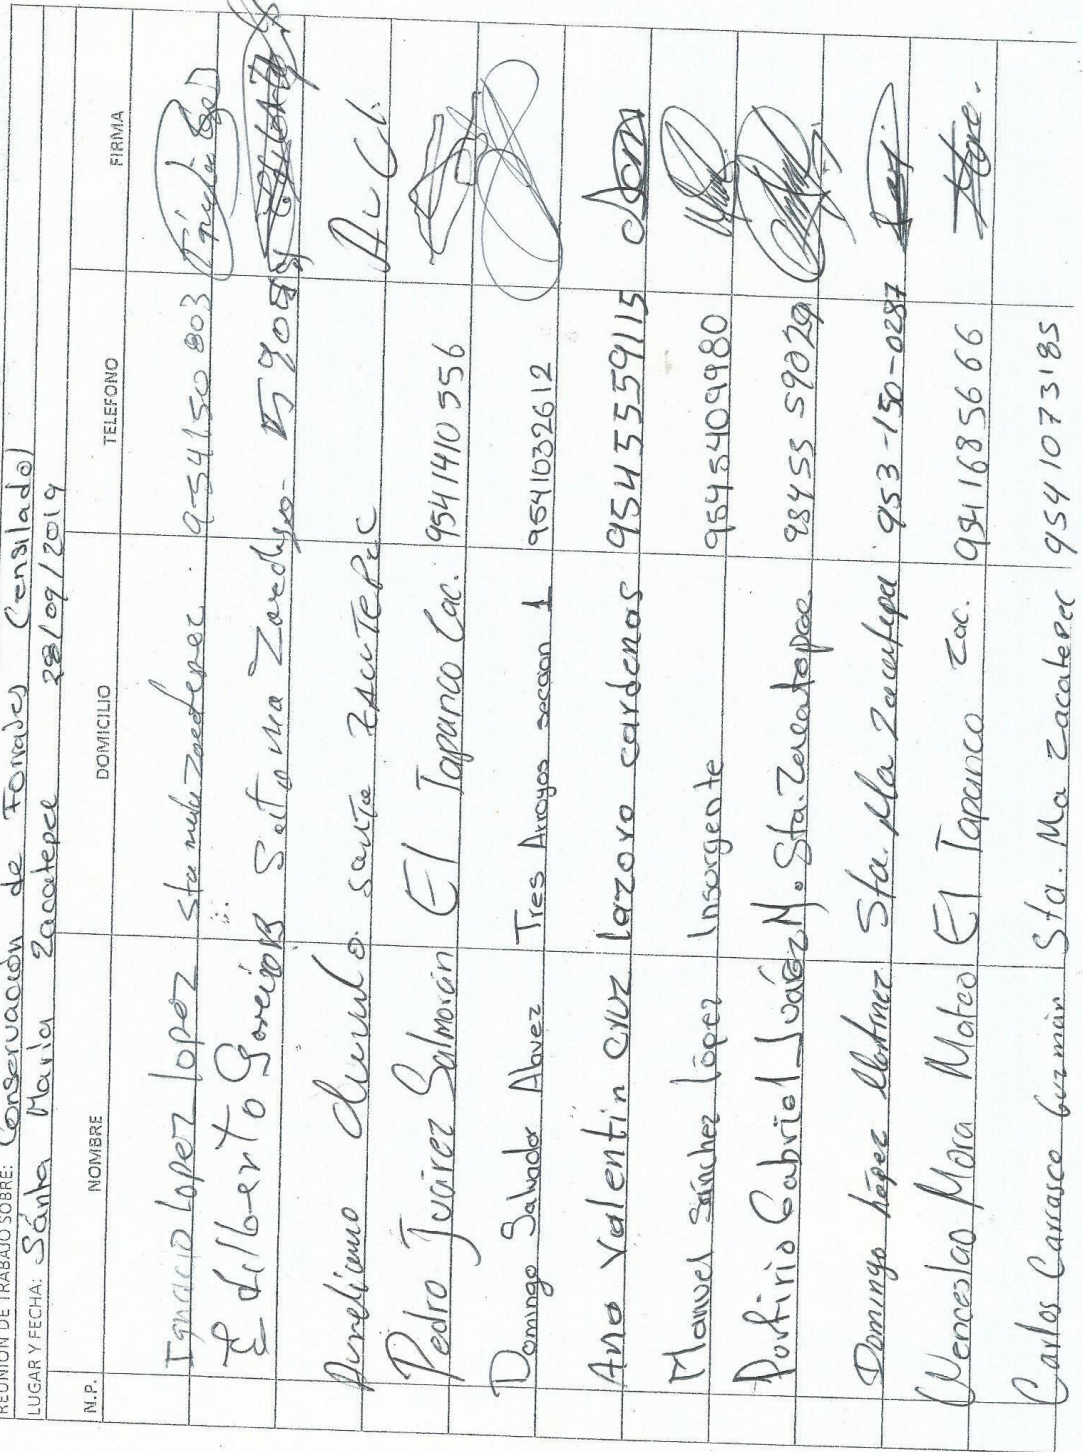 REUNIÓN DE TRABAJO SOBRE: Conservación de Forrajes (ensilado)
LUGAR Y FECHA: Santa María Zacatepec 28/09/2019
N.P. NOMBRE DOMICILIO TELEFONO FIRMA
Ignacio Lopez Lopez 954150 803
Edilberto
Aureliano santa
Pedro Juárez Salmorán El Tapanco Zac. 9541410556
Domingo Salvador Alavez Tres Arroyos seccion 1 9541032612
Ana Valentin cruz lazaro cardenas 9545559115
Manuel Sánchez López Insurgente 9545409980
Porfirio Gabriel Juárez M. Sta. Zacatepec
Domingo López Martinez Sta. Ma Zacatepec 953-150-0287
Wenceslao Mora Mateo El Tapanco Zac. 9541685666
Carlos Carrasco Guzmán Sta. Ma Zacatepec 9541073185